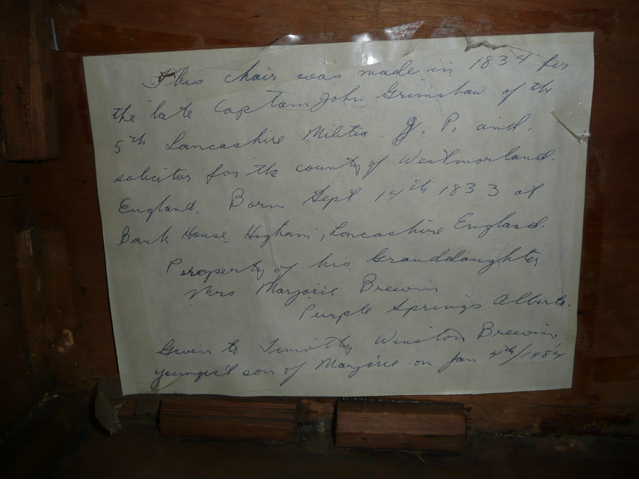 This chair was made in 1834 for
the late Captain John Grimshaw of the
5th Lancashire Militia. J. P. and.
solicitor for the county of Westmorland.
England. Born Sept 14th 1833 at
Bank House, Higham, Lancashire England.
Property of his Granddaughter
Mrs Marjorie Brewin
Purple Springs Alberta.
Given to Timothy Winston Brewin,
youngest son of Marjorie on Jan 4th/1984